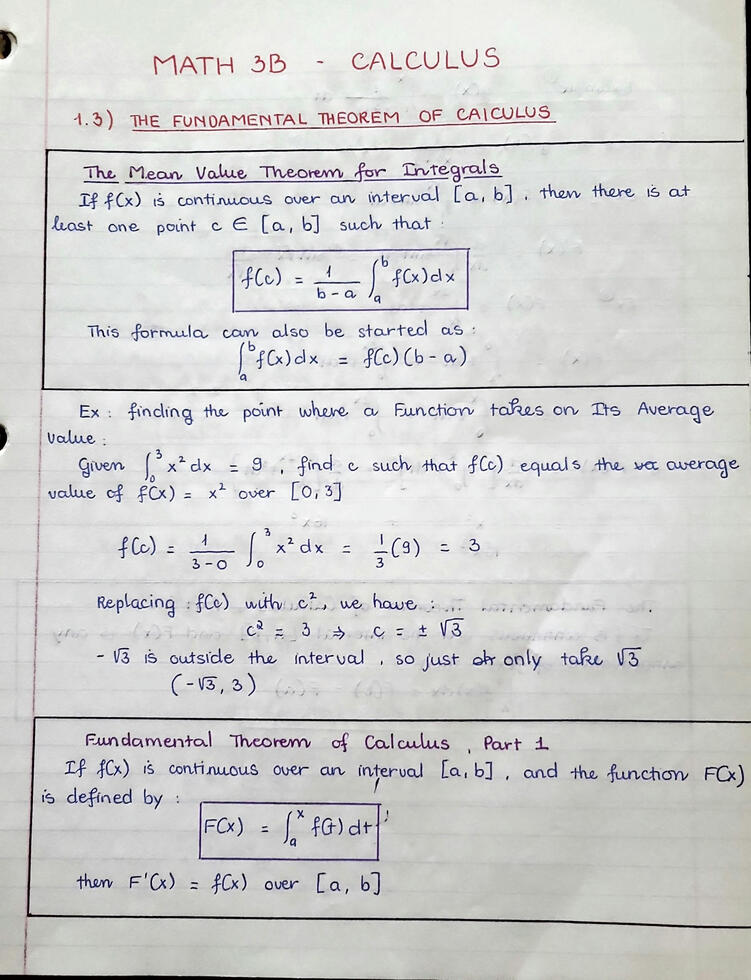 MATH 3B - CALCULUS
1.3) THE FUNDAMENTAL THEOREM OF CALCULUS
The Mean Value Theorem for Integrals
If f(x) is continuous over an interval [a, b], then there is at
least one point c ∈ [a, b] such that :
f(c) = 1/(b-a) ∫_a^b f(x)dx
This formula can also be started as :
∫_a^b f(x)dx = f(c)(b-a)
Ex : finding the point where a Function takes on Its Average
value :
Given ∫_0^3 x² dx = 9, find c such that f(c) equals the average
value of f(x) = x² over [0,3]
f(c) = 1/(3-0) ∫_0^3 x² dx = 1/3 (9) = 3
Replacing : f(c) with c², we have :
c² = 3 ⇒ c = ± √3
- √3 is outside the interval, so just only take √3
(-√3, 3)
Fundamental Theorem of Calculus, Part 1
If f(x) is continuous over an interval [a, b], and the function F(x)
is defined by :
F(x) = ∫_a^x f(t) dt
then F'(x) = f(x) over [a, b]